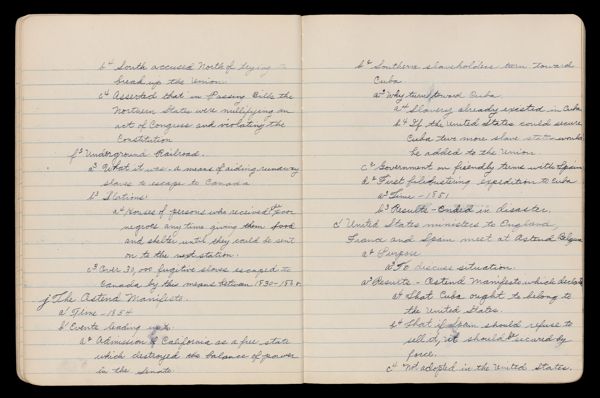 b⁴ South accused North of trying to
break up the Union.
c⁴ Asserted that in Passing Bills the
Northern States were nullifying an
act of Congress and violating the
Constitution
f² Underground Railroad.
a³ What it was. a means of aiding runaway
slaves to escape to Canada
b³ Stations.
a⁴ Houses of persons who received the
negroes any time giving them food
and shelter until they could be sent
on to the next station.
c³ Over 30,000 fugitive slaves escaped to
Canada by this means between 1830-1860.
j The Astend Manifesto.
a' Time - 1854
b' Events leading up
a² Admission of California as a free state
which destroyed the balance of power
in the Senate
b² Southern slaveholders turn toward
Cuba
a³ Why turn toward Cuba
a⁴ Slavery already existed in Cuba
b⁴ If the United States could secure
Cuba two more slave states would
be added to the Union
c² Government on friendly terms with Spain
d² First filibustering expedition to Cuba
a³ Time - 1851
b³ Results - Ended in disaster.
c' United States ministers to England,
France and Spain meet at Astend Belgium
a² Purpose
a³ To discuss situation.
a² Results - Astend Manifesto which declared
a⁴ That Cuba ought to belong to
the United States.
b⁴ That if Spain should refuse to
sell it, it should be secured by
force.
c⁴ Not adopted in the United States.